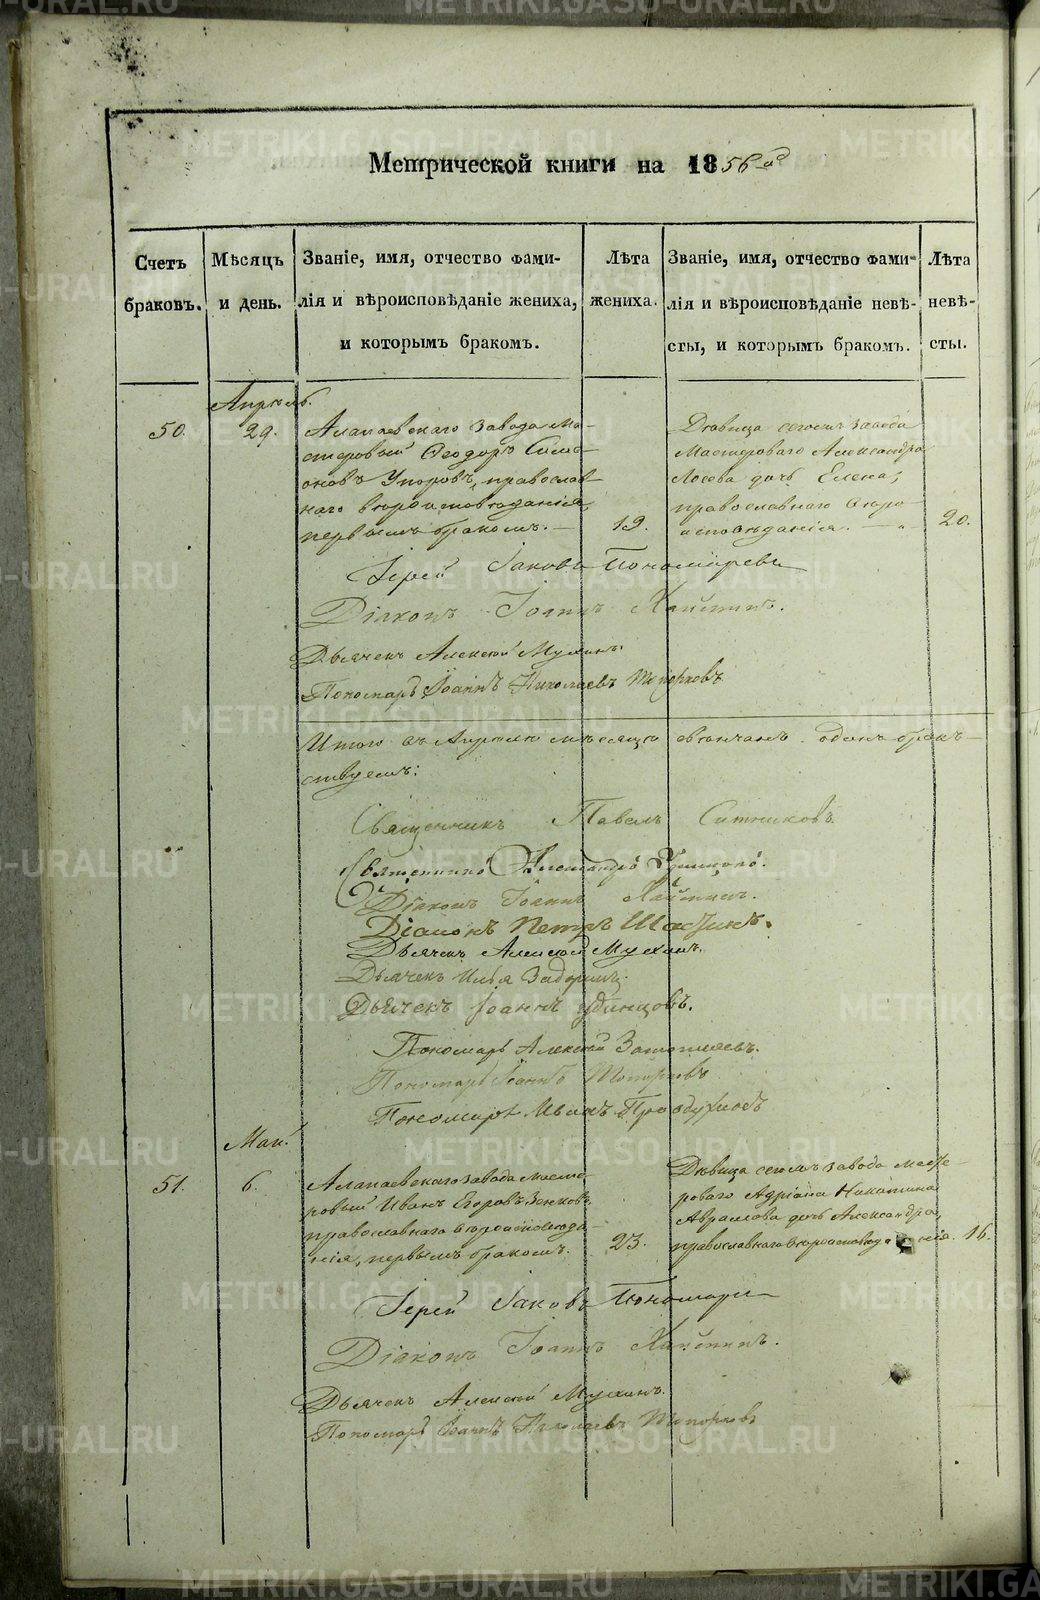 Метрической книги на 1856 й
Счетъ браковъ.
Мѣсяцъ и день.
Званіе, имя, отчество фами-
лія и вѣроисповѣданіе жениха,
и которымъ бракомъ.
Лѣта жениха.
Званіе, имя, отчество фами-
лія и вѣроисповѣданіе невѣ-
сты, и которымъ бракомъ.
Лѣта невѣ-
сты.
Апрѣль.
50.
29.
Алапаевскаго завода Ма-
стеровый Ѳеодоръ Симе-
оновъ Упоровъ, православ-
наго вѣроисповѣданія,
первымъ бракомъ.
19.
Дѣвица сегожъ завода
Мастероваго Александра
Лосева дочь Елена,
православнаго вѣро-
исповѣданія.
20.
Іерей Іаковъ Пономаревъ
Діаконъ Іоаннъ Хлынинъ.
Дьячекъ Алексѣй Мухинъ
Пономарь Іоаннъ Николаевъ Топорковъ
Итого въ Апрѣлѣ мѣсяцѣ вѣнчанъ одинъ бракъ
Священникъ Павелъ Ситниковъ
Священникъ Александръ
Діаконъ Іоаннъ
Діаконъ Петръ
Дьячекъ Алексѣй Мухинъ.
Дьячекъ Илья Задоринъ
Дьячекъ Іоаннъ Удинцовъ.
Пономарь Алексѣй
Пономарь Іоаннъ Топорковъ
Пономарь Иванъ
Май.
51.
6.
Алапаевскаго завода масте-
ровый Иванъ Егоровъ Зенковъ,
православнаго вѣроисповѣда-
нія, первымъ бракомъ.
23.
Дѣвица сегожъ завода масте-
роваго Адріана Никитина
Абрамова дочь Александра,
православнаго вѣроисповѣданія.
16.
Іерей Іаковъ Пономаревъ
Діаконъ Іоаннъ Хлынинъ.
Дьячекъ Алексѣй Мухинъ.
Пономарь Іоаннъ Николаевъ Топорковъ
METRIKI.GASO-URAL.RU